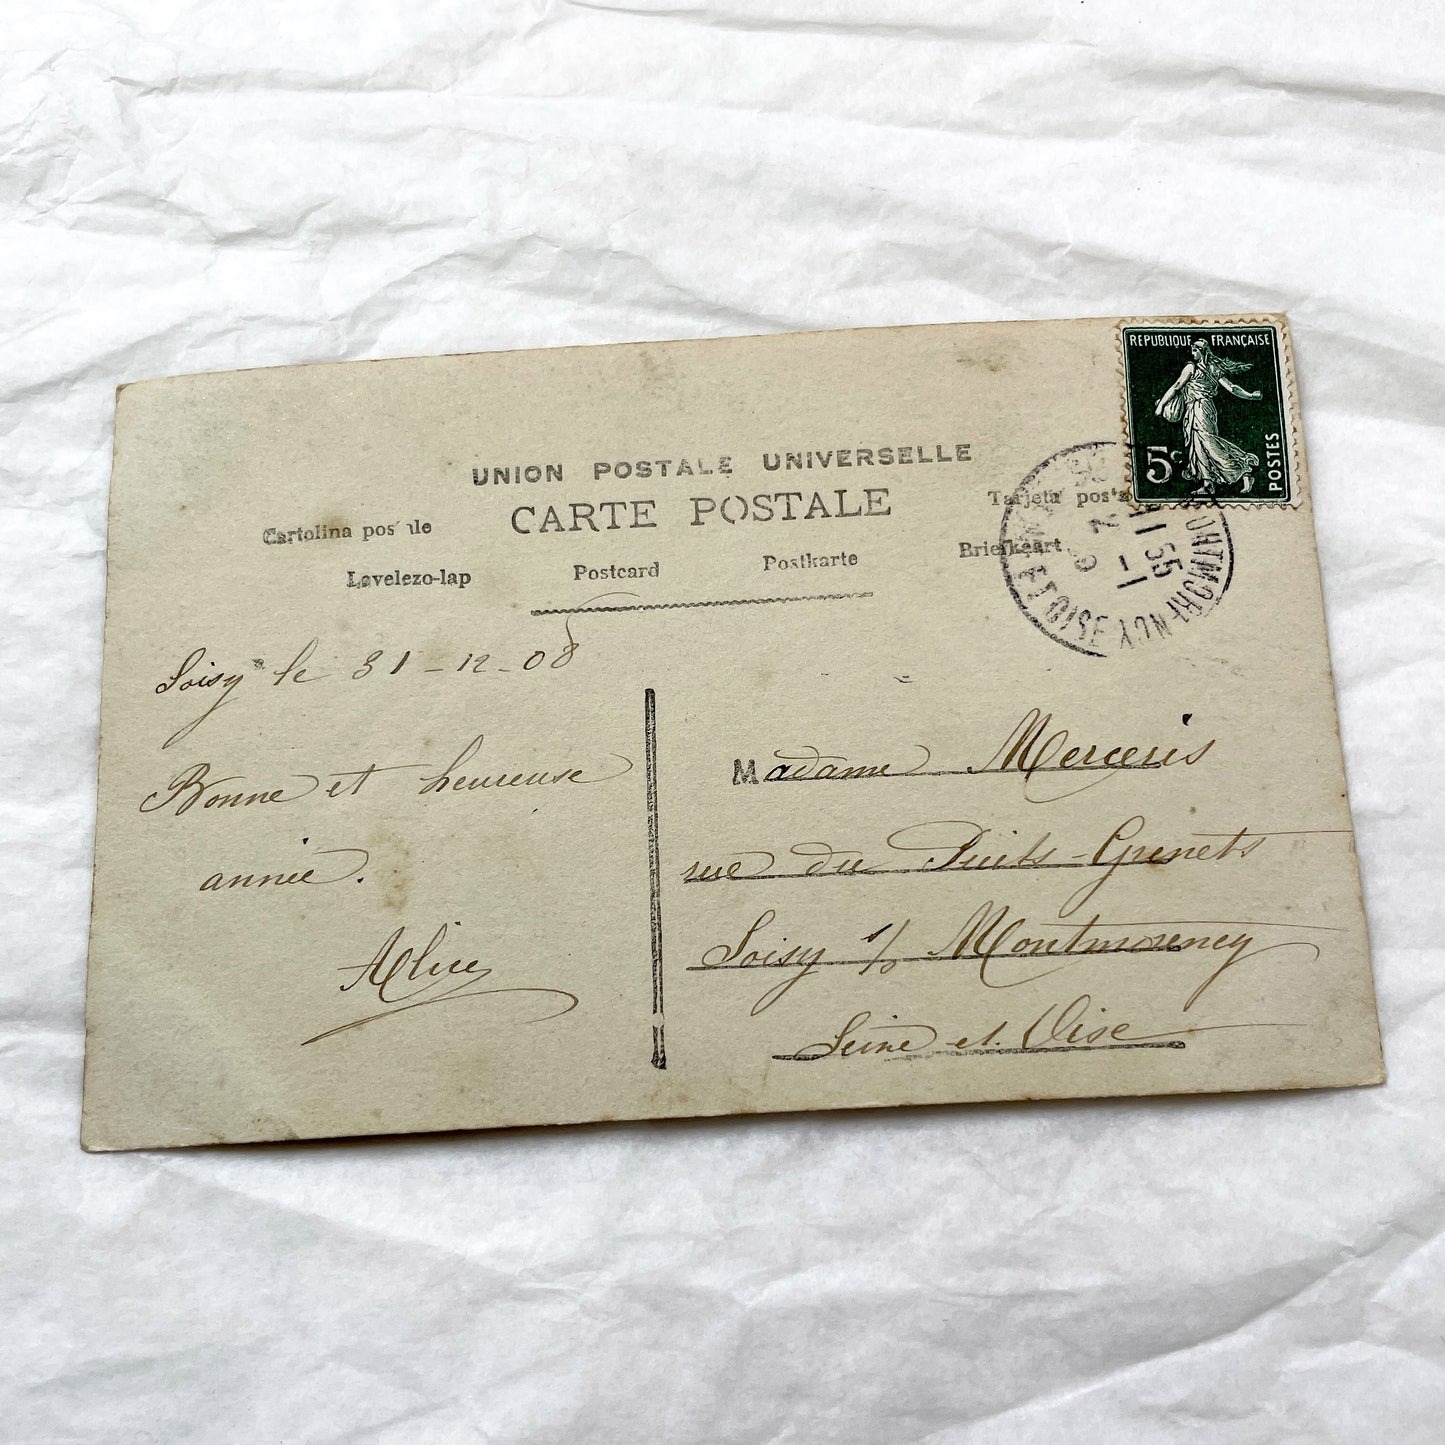 REPUBLIQUE FRANÇAISE
5c
POSTES
UNION POSTALE UNIVERSELLE
CARTE POSTALE
Cartolina postale
Tarjeta posta
Levelezo-lap
Postcard
Postkarte
Briefkaart
MONTMORENCY
SEINE ET OISE
11 55
2 -1
Soisy le 31-12-08
Bonne et heureuse
année.
Alice
Madame Merceris
rue du Puits-Grenets
Soisy s/s Montmorency
Seine et Oise